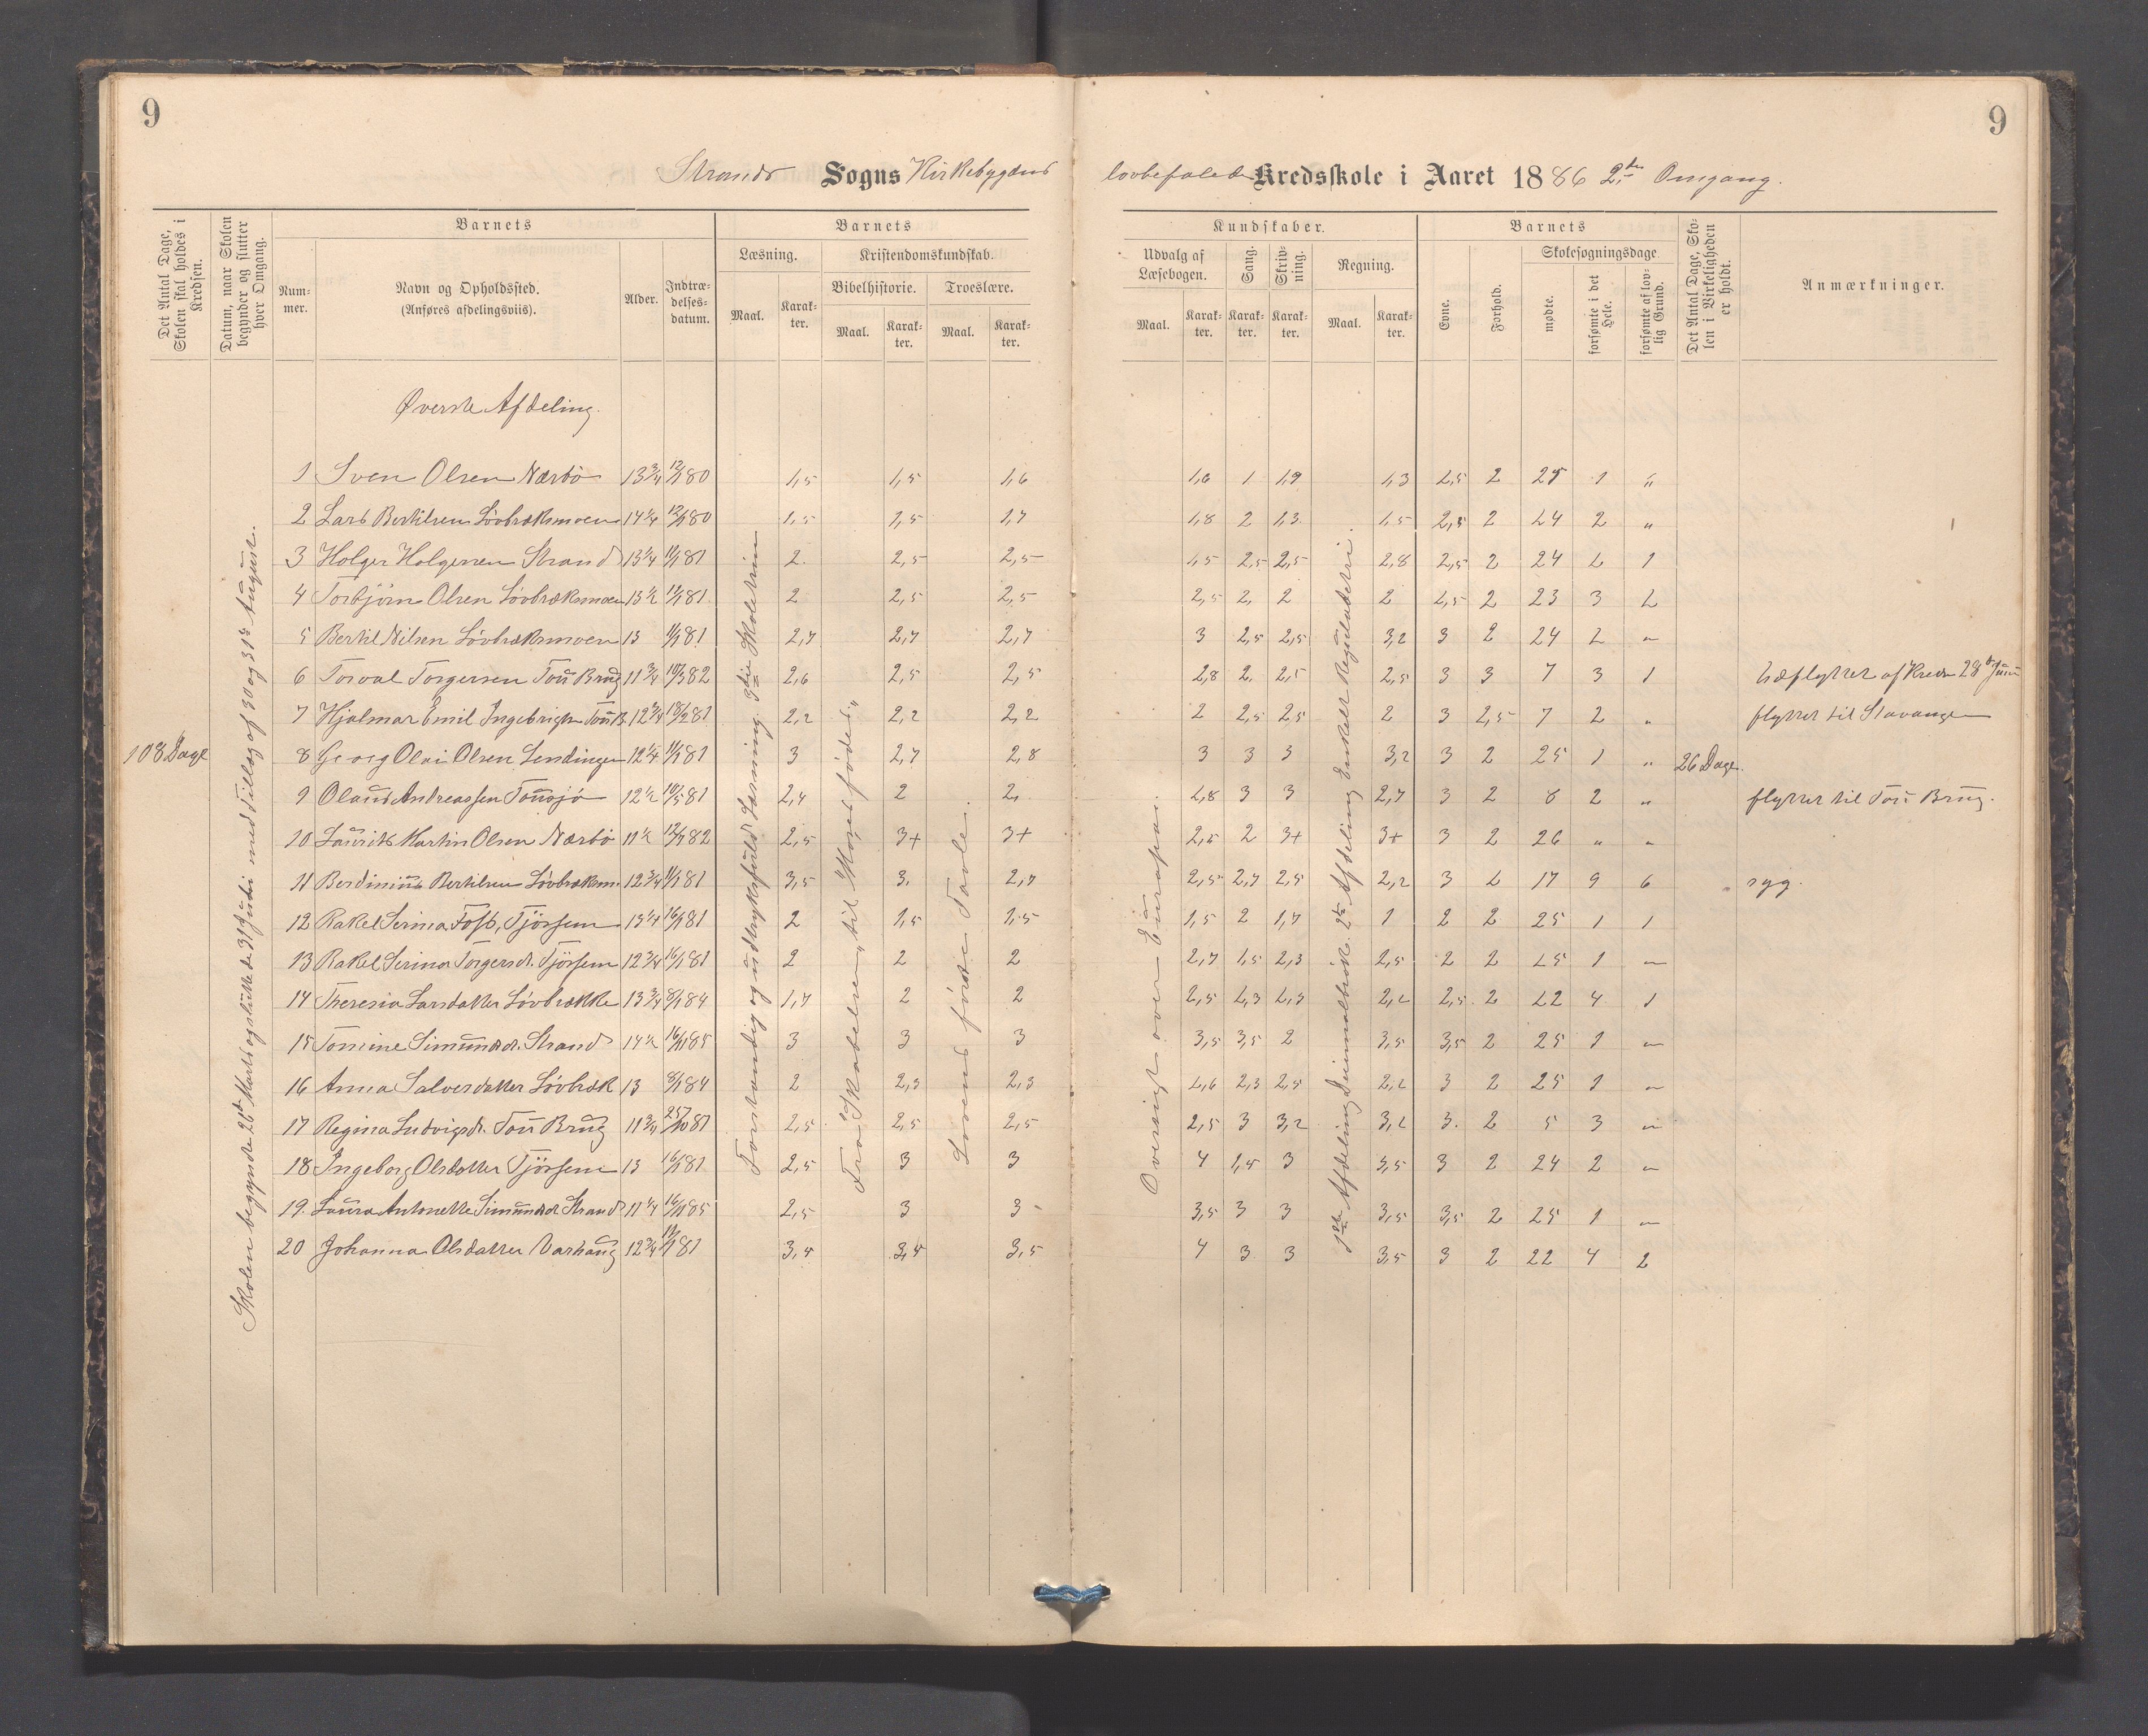 9
9
Strands Sogns Kirkebygdens lovbefalede Kredsskole i Aaret 1886 2den Omgang.
Det Antal Dage, Skolen skal holdes i Kredsen.
Datum, naar Skolen begynder og slutter hver Omgang.
Barnets
Nummer.
Navn og Opholdssted.
(Anføres afdelingsviis).
Alder.
Indtrædelsesdatum.
Barnets
Læsning.
Maal.
Karakter.
Kristendomskundskab.
Bibelhistorie.
Maal.
Karakter.
Troeslære.
Maal.
Karakter.
Kundskaber.
Udvalg af Læsebogen.
Maal.
Karakter.
Sang.
Karakter.
Skrivning.
Karakter.
Regning.
Maal.
Karakter.
Barnets
Evne.
Forhold.
Skolesøgningsdage.
mødte.
forsømte i det Hele.
forsømte af lovlig Grund.
Det Antal Dage, Skolen i Virkeligheden er holdt.
Anmærkninger.
108 Dage
Øverste Afdeling.
1 Sven Olsen Nærbö 13 3/4 12/1 80 1,5 1,5 1,6 1,6 1 1,9 1,3 2,5 2 25 1 "
2 Lars Bertilsen Lövbrækmoen 14 1/4 12/1 80 1,5 1,5 1,7 1,8 2 1,3 1,5 2,5 2 24 2 "
3 Holger Holgersen Strand 13 1/4 11/1 81 2 2,5 2,5 1,5 2,5 2,5 2,8 2,5 2 24 2 1
4 Torbjörn Olsen Lövbrækmoen 13 1/2 11/1 81 2 2,5 2,5 2,5 2 2 2 2,5 2 23 3 2
5 Bertil Nilsen Lövbrækmoen 13 11/1 81 2,7 2,7 2,7 3 2,5 2,5 3,2 3 2 24 2 "
6 Torval Torgersen Tou Brug 11 3/4 10/3 82 2,6 2,5 2,5 2,8 2 2,5 2,5 3 3 7 3 1 udflyttet af Kreds 28de Juni
7 Hjalmar Emil Ingebrigts Tou B. 12 3/4 18/2 81 2,2 2,2 2,2 2 2,5 2,5 2 3 2,5 7 2 " flyttet til Stavanger
8 Georg Olai Olsen Lendingen 12 1/4 11/1 81 3 2,7 2,8 3 3 3 3,2 3 2 25 1 " 26 Dage.
9 Olaus Andreassen Tousjö 12 1/2 10/5 81 2,4 2 2 2,8 3 3 2,7 3 2 8 2 " flyttet til Tou Brug.
10 Laurits Martin Olsen Nærbö 11 1/2 12/1 82 2,5 3+ 3+ 2,5 2 3+ 3+ 3 2 26 " "
11 Berdinius Bertilsen Lövbrækm. 12 3/4 11/1 81 3,5 3. 2,7 2,5 2,7 2,5 2,2 3 2 17 9 6 syg.
12 Rakel Serina Fost, Tjössem 13 1/4 16/1 81 2 1,5 1,5 1,5 2 1,7 1 2 2 25 1 1
13 Rakel Serina Torgersdr. Tjössem 12 3/4 16/1 81 2 2 2 2,7 1,5 2,3 2,5 2 2 25 1 "
14 Theresia Larsdatter Lövbrække 13 3/4 8/1 84 1,7 2 2 2,5 2,3 2,3 2,2 2,5 2 22 4 1
15 Tomine Simundsdr. Strand 14 1/2 16/11 85 3 3 3 3,5 3,5 2 3,5 3,5 2 25 1 "
16 Anna Salvesdatter Lövbræk 13 8/1 84 2 2,3 2,3 2,6 2,3 2,5 2,2 3 2 25 1 "
17 Regina Ludvigsdr. Tou Brug 11 3/4 25/10 81 2,5 2,5 2,5 2,5 3 3,2 3,2 3. 2 5 3 "
18 Ingeborg Olsdatter Tjössem 13 16/1 81 2,5 3 3 4 1,5 3 3,5 3 2 24 2 "
19. Laura Antonette Simundsdr Strand 11 1/4 16/11 85 2,5 3 3 3,5 3 3 3,5 3,5 2 25 1 "
20 Johanna Olsdatter Varhaug 12 3/4 11/1 81 3,5 3,5 3,5 4 3 3 3,5 3 2 22 4 2
Skolen begyndte 26de Marts og sluttede 31 Juli med Tillæg af 30 og 31te August.
Forstandig og udtryksfuld Læsning. 3die Skoletrin
Fra "Skabelsen" til "Mose föder"
Lovens förste Tavle.
Oversigt over Europa.
1ste Afdeling Decimalbrök. 2den Afdeling Enkelt Reguladetri.